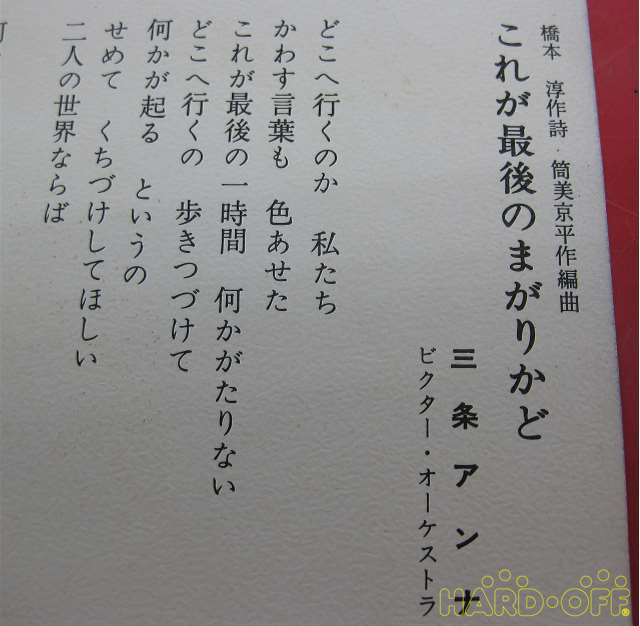 橋本 淳作詩・筒美京平作編曲
これが最後のまがりかど
三条アンナ
ビクター・オーケストラ
どこへ行くのか 私たち
かわす言葉も 色あせた
これが最後の一時間 何かがたりない
どこへ行くの 歩きつづけて
何かが起る というの
せめて くちづけしてほしい
二人の世界ならば
HARD-OFF